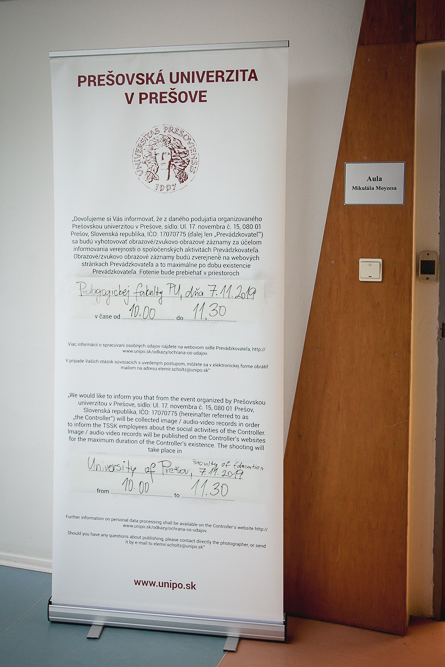 PREŠOVSKÁ UNIVERZITA
V PREŠOVE
UNIVERSITAS PREŠOVIENSIS
1997
„Dovoľujeme si Vás informovať, že z daného podujatia organizovaného
Prešovskou univerzitou v Prešove, sídlo: Ul. 17. novembra č. 15, 080 01
Prešov, Slovenská republika, IČO: 17070775 (ďalej len „Prevádzkovateľ")
sa budú vyhotovovať obrazové/zvukovo obrazové záznamy za účelom
informovania verejnosti o spoločenských aktivitách Prevádzkovateľa.
Obrazové/zvukovo obrazové záznamy budú zverejnené na webových
stránkach Prevádzkovateľa a to maximálne po dobu existencie
Prevádzkovateľa. Fotenie bude prebiehať v priestoroch
Pedagogickej fakulty PU, dňa 7.11.2019
v čase od 10.00 do 11.30
Viac informácií o spracúvaní osobných údajov nájdete na webovom sídle Prevádzkovateľa, http://
www.unipo.sk/odkazy/ochrana-oo-udajov.
V prípade Vašich otázok súvisiacich s uvedeným postupom, môžete sa v elektronickej forme obrátiť
mailom na adresu elemir.scholtz@unipo.sk"
„We would like to inform you that from the event organized by Prešovskou
univerzitou v Prešove, sídlo: Ul. 17. novembra č. 15, 080 01 Prešov,
Slovenská republika, IČO: 17070775 (hereinafter referred to as
„the Controller") will be collected image / audio-video records in order
to inform the TSSK employees about the social activities of the Controller.
Image / audio-video records will be published on the Controller's websites
for the maximum duration of the Controller's existence. The shooting will
take place in
University of Prešov, Faculty of Education
7.11.2019
from 10.00 to 11.30
Further information on personal data processing shall be available on the Controller's website http://
www.unipo.sk/odkazy/ochrana-oo-udajov.
Should you have any questions about publishing, please contact directly the photographer, or send
it by e-mail to elemir.scholtz@unipo.sk"
www.unipo.sk
Aula
Mikuláša Moyzesa